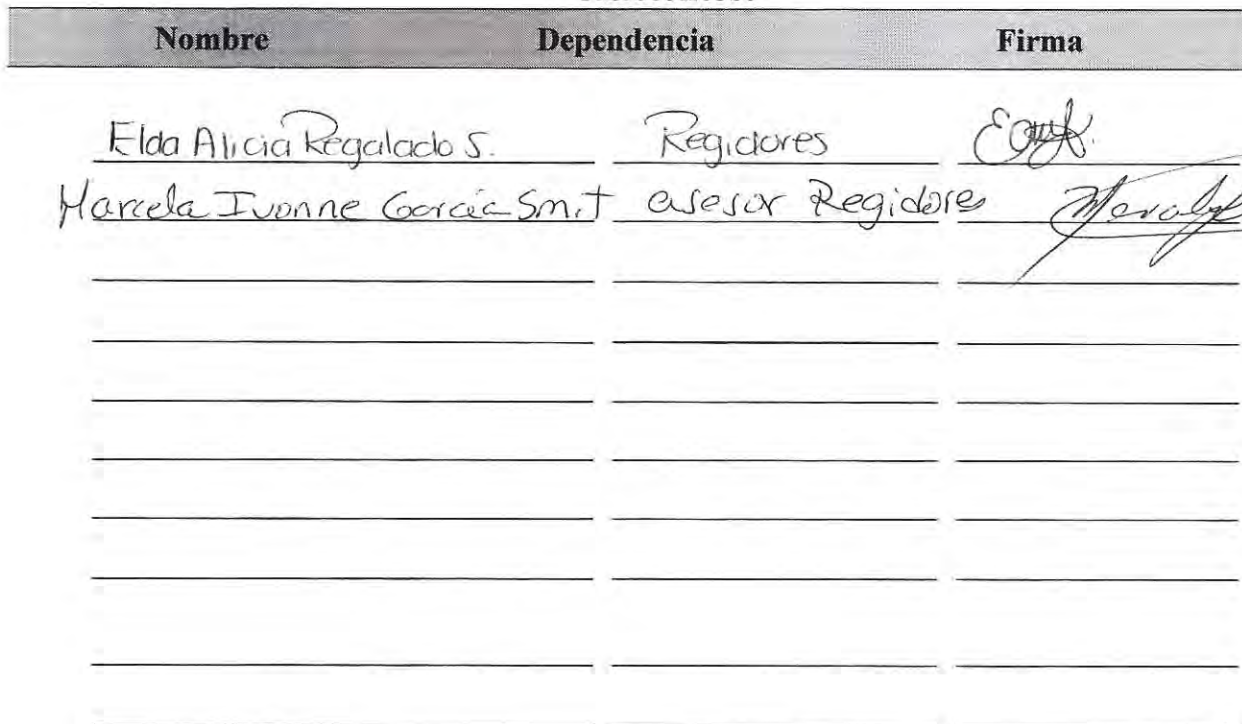 Nombre Dependencia Firma
Elda Alicia Regalado S. Regidores
Marcela Ivonne García Smit asesor Regidores